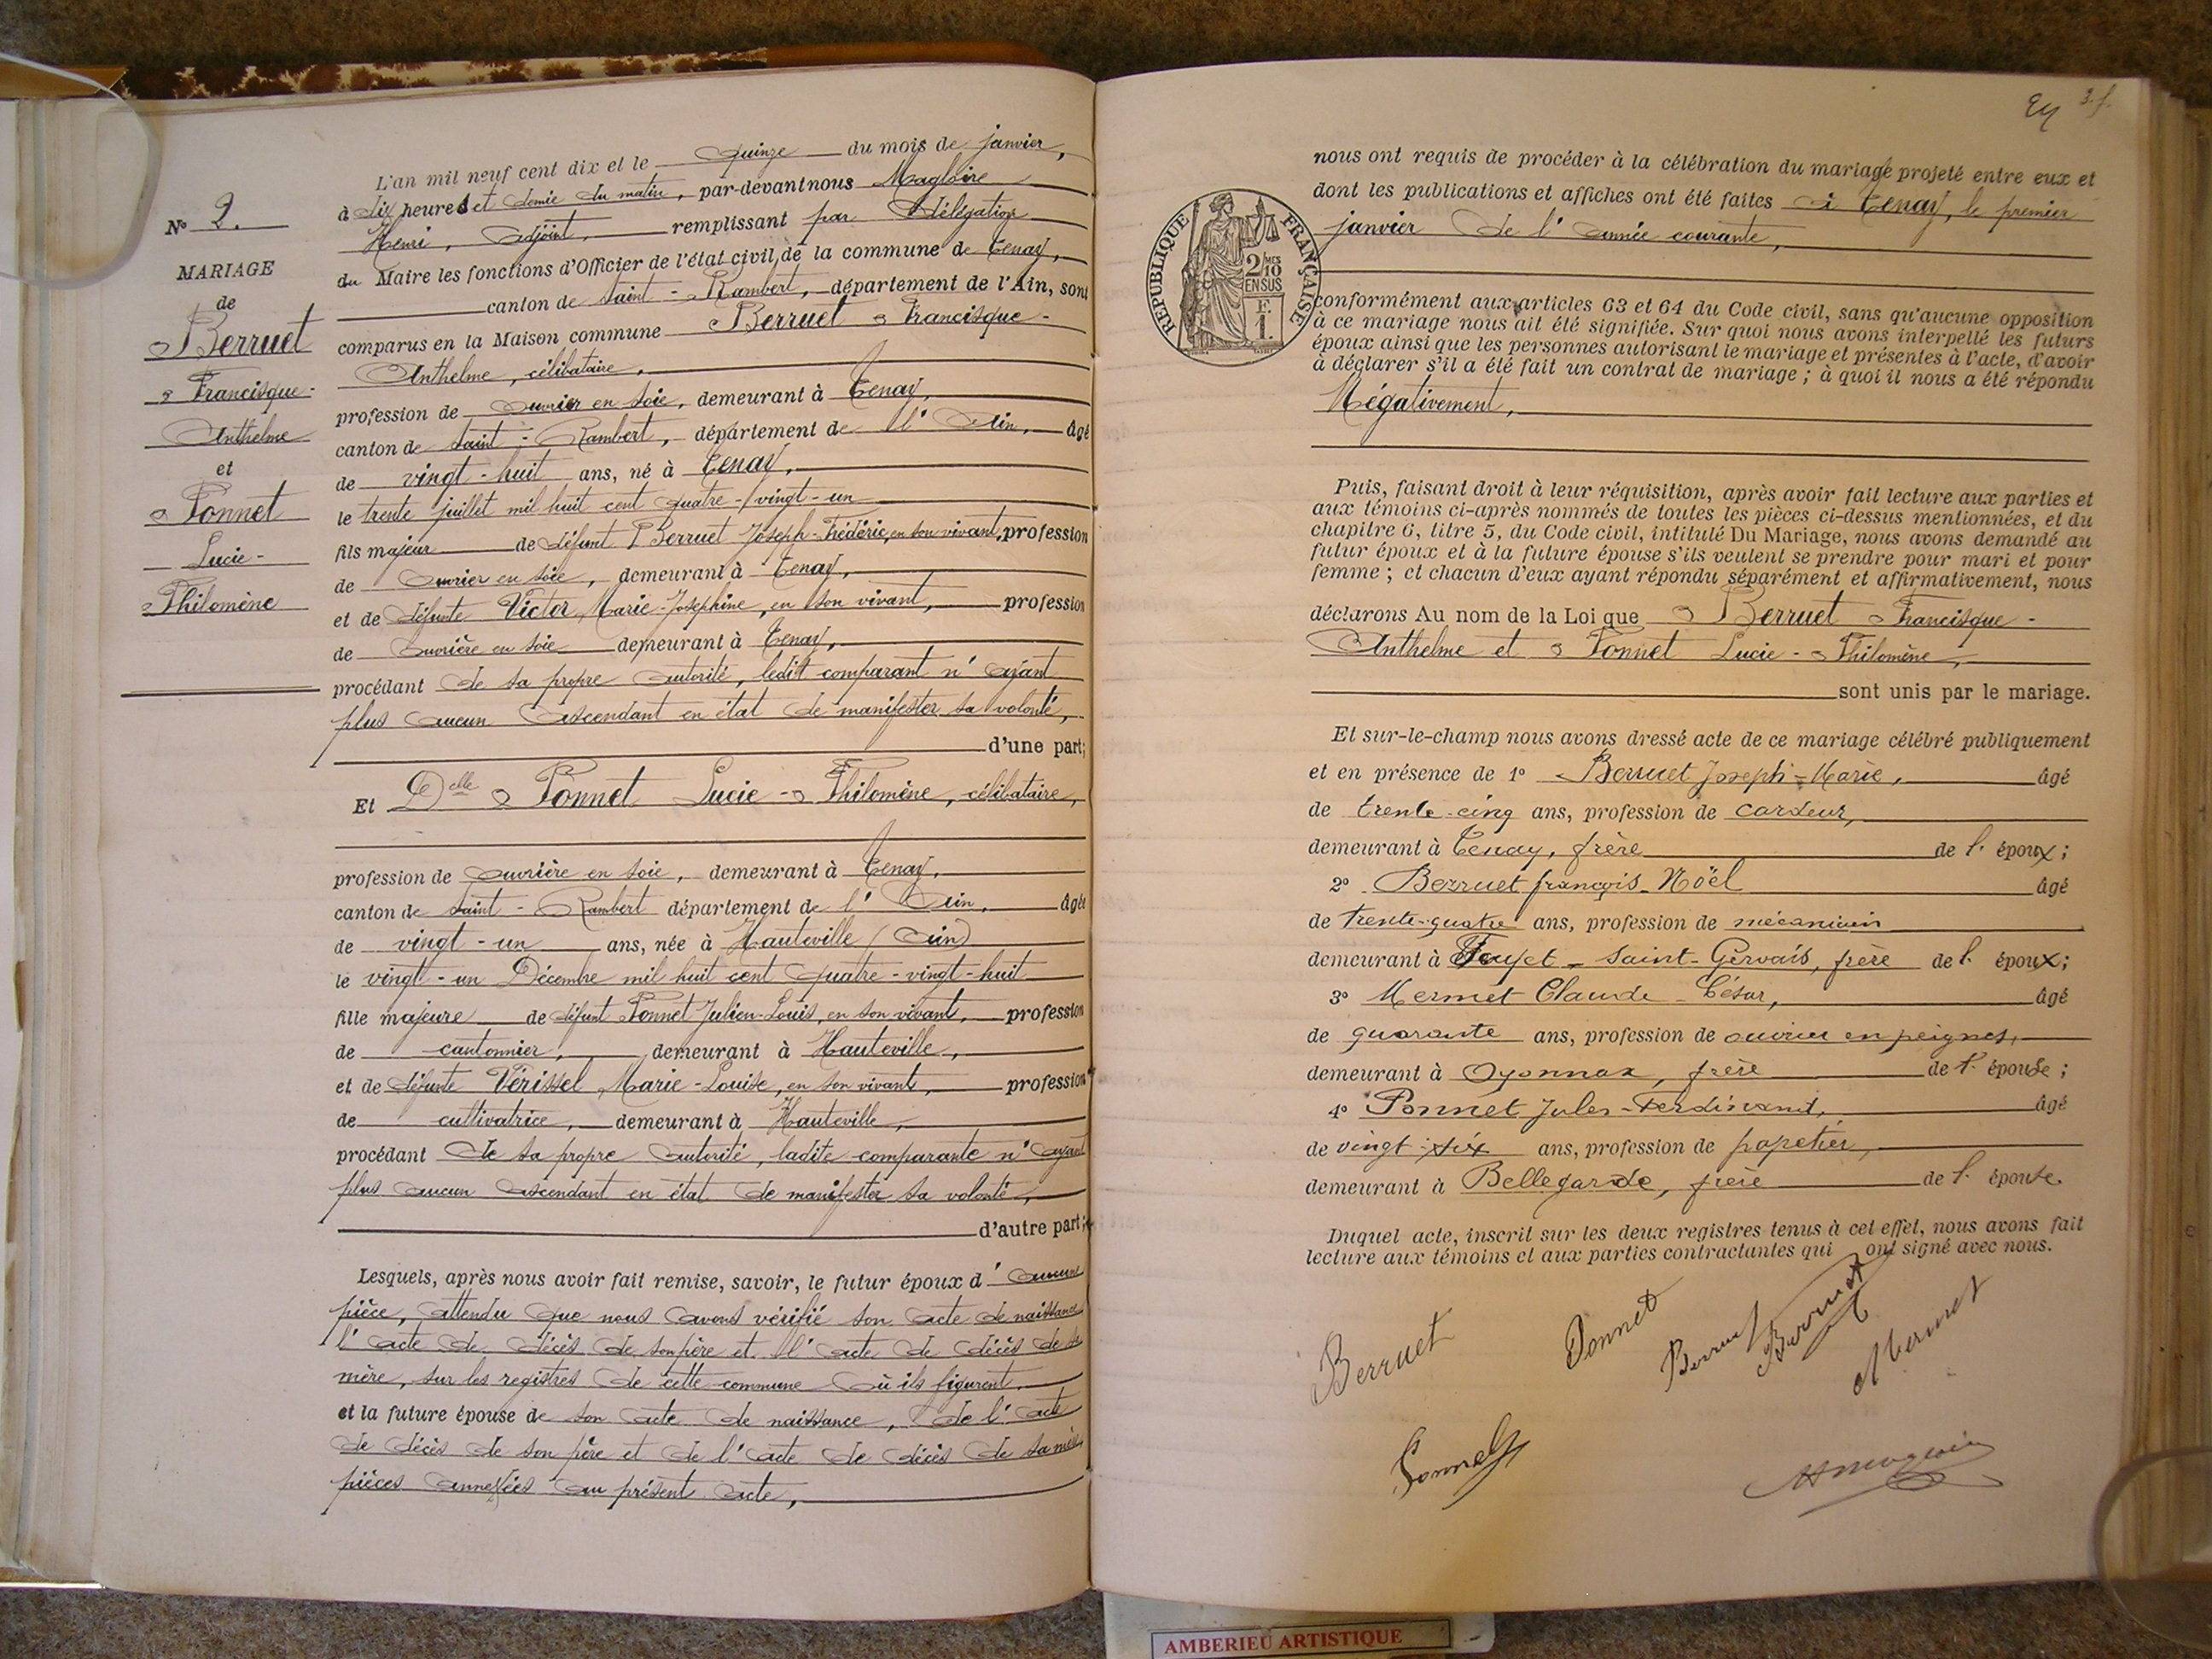 N° 2.
MARIAGE
de
Berruet
Francisque-
Anthelme
et
Ponnet
Lucie-
Philomène
L'an mil neuf cent dix et le quinze du mois de janvier,
à dix heures et demie du matin, par-devant nous Magloire
Henri, Adjoint, remplissant par délégation
du Maire les fonctions d'Officier de l'état civil de la commune de Tenay,
canton de Saint-Rambert, département de l'Ain, sont
comparus en la Maison commune Berruet Francisque-
Anthelme, célibataire,
profession de ouvrier en soie, demeurant à Tenay,
canton de Saint-Rambert, département de l'Ain, âgé
de vingt-huit ans, né à Tenay,
le trente juillet mil huit cent quatre-vingt-un
fils majeur de défunt Berruet Joseph-Frédéric, en son vivant, profession
de ouvrier en soie, demeurant à Tenay,
et de défunte Victor Marie-Joséphine, en son vivant, profession
de ouvrière en soie demeurant à Tenay,
procédant de sa propre autorité, ledit comparant n'ayant
plus aucun ascendant en état de manifester sa volonté,
d'une part;
Et Delle Ponnet Lucie-Philomène, célibataire,
profession de ouvrière en soie, demeurant à Tenay,
canton de Saint-Rambert département de l'Ain, âgée
de vingt-un ans, née à Hauteville (Ain)
le vingt-un Décembre mil huit cent quatre-vingt-huit
fille majeure de défunt Ponnet Julien-Louis, en son vivant, profession
de cantonnier, demeurant à Hauteville,
et de défunte Vérissel Marie-Louise, en son vivant, profession
de cultivatrice, demeurant à Hauteville,
procédant de sa propre autorité, ladite comparante n'ayant
plus aucun ascendant en état de manifester sa volonté,
d'autre part;
Lesquels, après nous avoir fait remise, savoir, le futur époux d'aucune
pièce, attendu que nous avons vérifié son acte de naissance
l'acte de décès de son père et l'acte de décès de sa
mère, sur les registres de cette commune où ils figurent,
et la future épouse de son acte de naissance, de l'acte
de décès de son père et de l'acte de décès de sa mère
pièces annexées au présent acte,
3. f.
nous ont requis de procéder à la célébration du mariage projeté entre eux et
dont les publications et affiches ont été faites à Tenay, le premier
janvier de l'année courante,
REPUBLIQUE FRANÇAISE
2/10 MES
EN SUS
F.
1.
conformément aux articles 63 et 64 du Code civil, sans qu'aucune opposition
à ce mariage nous ait été signifiée. Sur quoi nous avons interpellé les futurs
époux ainsi que les personnes autorisant le mariage et présentes à l'acte, d'avoir
à déclarer s'il a été fait un contrat de mariage ; à quoi il nous a été répondu
Négativement,
Puis, faisant droit à leur réquisition, après avoir fait lecture aux parties et
aux témoins ci-après nommés de toutes les pièces ci-dessus mentionnées, et du
chapitre 6, titre 5, du Code civil, intitulé Du Mariage, nous avons demandé au
futur époux et à la future épouse s'ils veulent se prendre pour mari et pour
femme ; et chacun d'eux ayant répondu séparément et affirmativement, nous
déclarons Au nom de la Loi que Berruet Francisque-
Anthelme et Ponnet Lucie-Philomène,
sont unis par le mariage.
Et sur-le-champ nous avons dressé acte de ce mariage célébré publiquement
et en présence de 1° Berruet Joseph-Marie, âgé
de trente-cinq ans, profession de cardeur,
demeurant à Tenay, frère de l'époux;
2° Berruet françois-Noël âgé
de trente-quatre ans, profession de mécanicien
demeurant à Saint-Gervais, frère de l'époux;
3° Mermet Claude-César, âgé
de quarante ans, profession de ouvrier en peignes,
demeurant à Oyonnax, frère de l'épouse;
4° Ponnet Jules-Ferdinand, âgé
de vingt-six ans, profession de papetier,
demeurant à Bellegarde, frère de l'épouse.
Duquel acte, inscrit sur les deux registres tenus à cet effet, nous avons fait
lecture aux témoins et aux parties contractantes qui ont signé avec nous.
Berruet Ponnet Berruet Berruet Mermet
Ponnet
AMBERIEU ARTISTIQUE